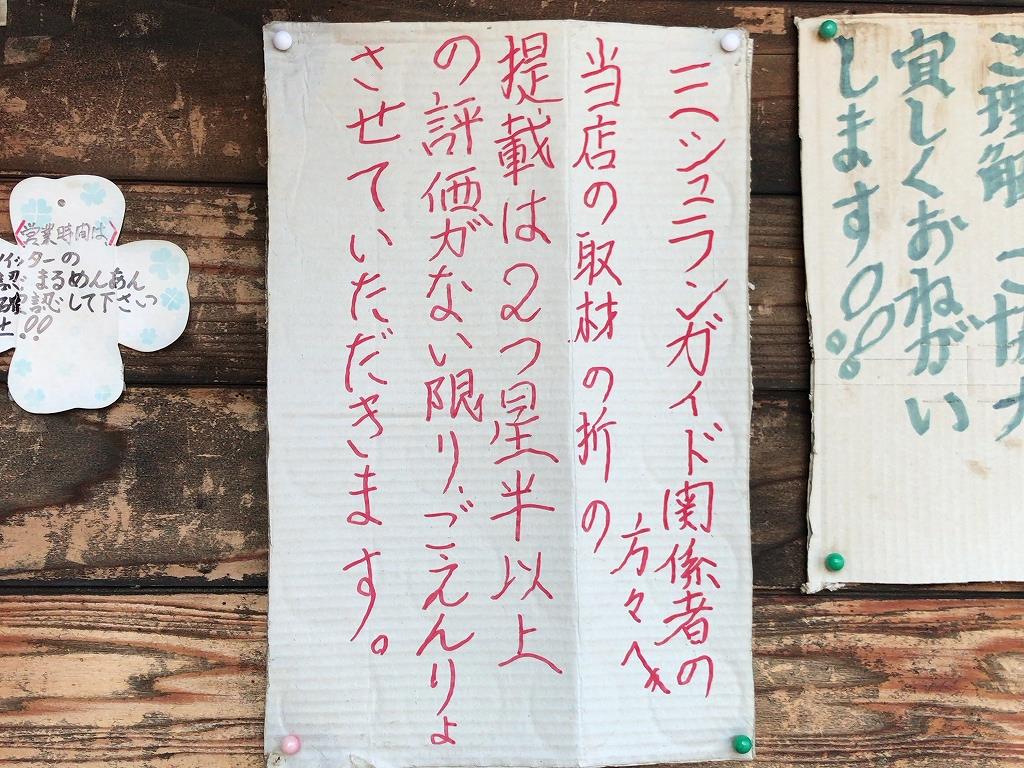 ご理解
宜しくおねがい
します!!
ミヘシュランガイド関係者の
方々へ
当店の取材の折の
提載は2つ星半以上
の評価ガない限り、ごえんりょ
させていただきます。
営業時間は
イッターの
認 まるめんあん
確認して下さいっ
!!